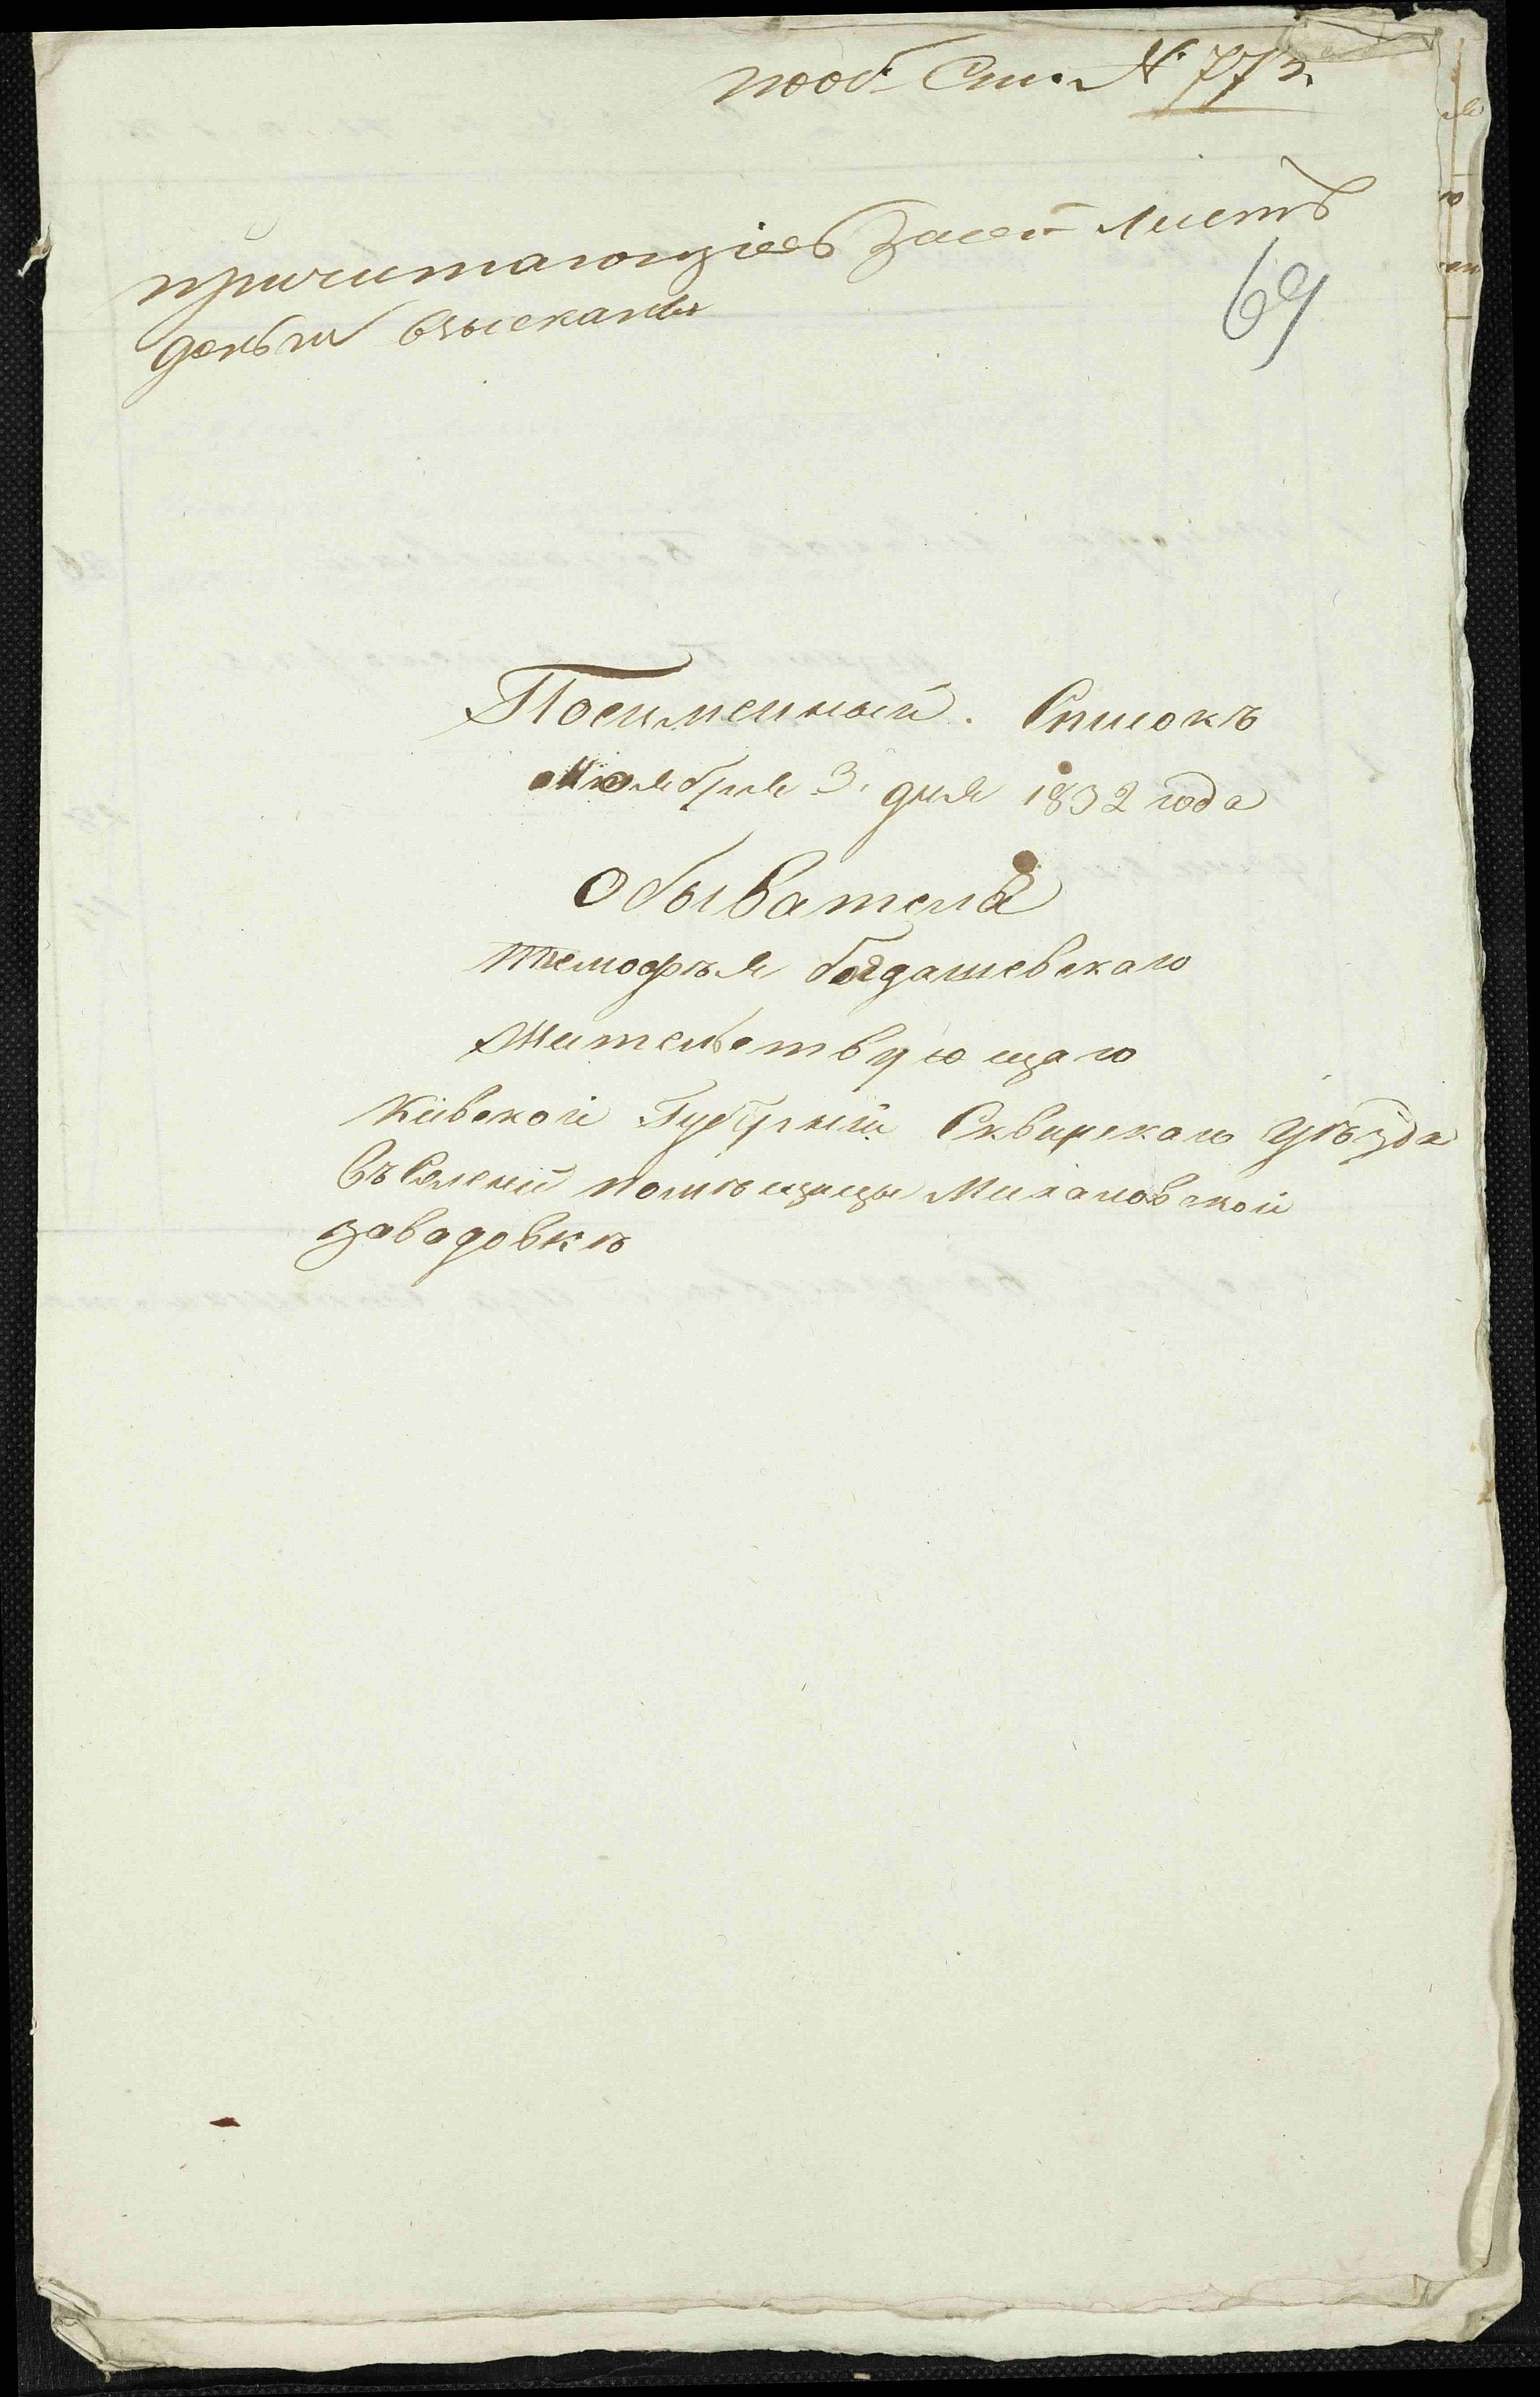 пооб Спи. № 772.
причитающiесь засей листъ
69
деньги взысканы
Поеименный. Списокъ
Ноября 3. дня 1832 года
Обывателя
Темофѣя багдашевскаго
Жительствующаго
Кiивской Губернiи Сквирскаго уѣзда
въ Селенiи помѣщицы Михаловской
завадовкѣ